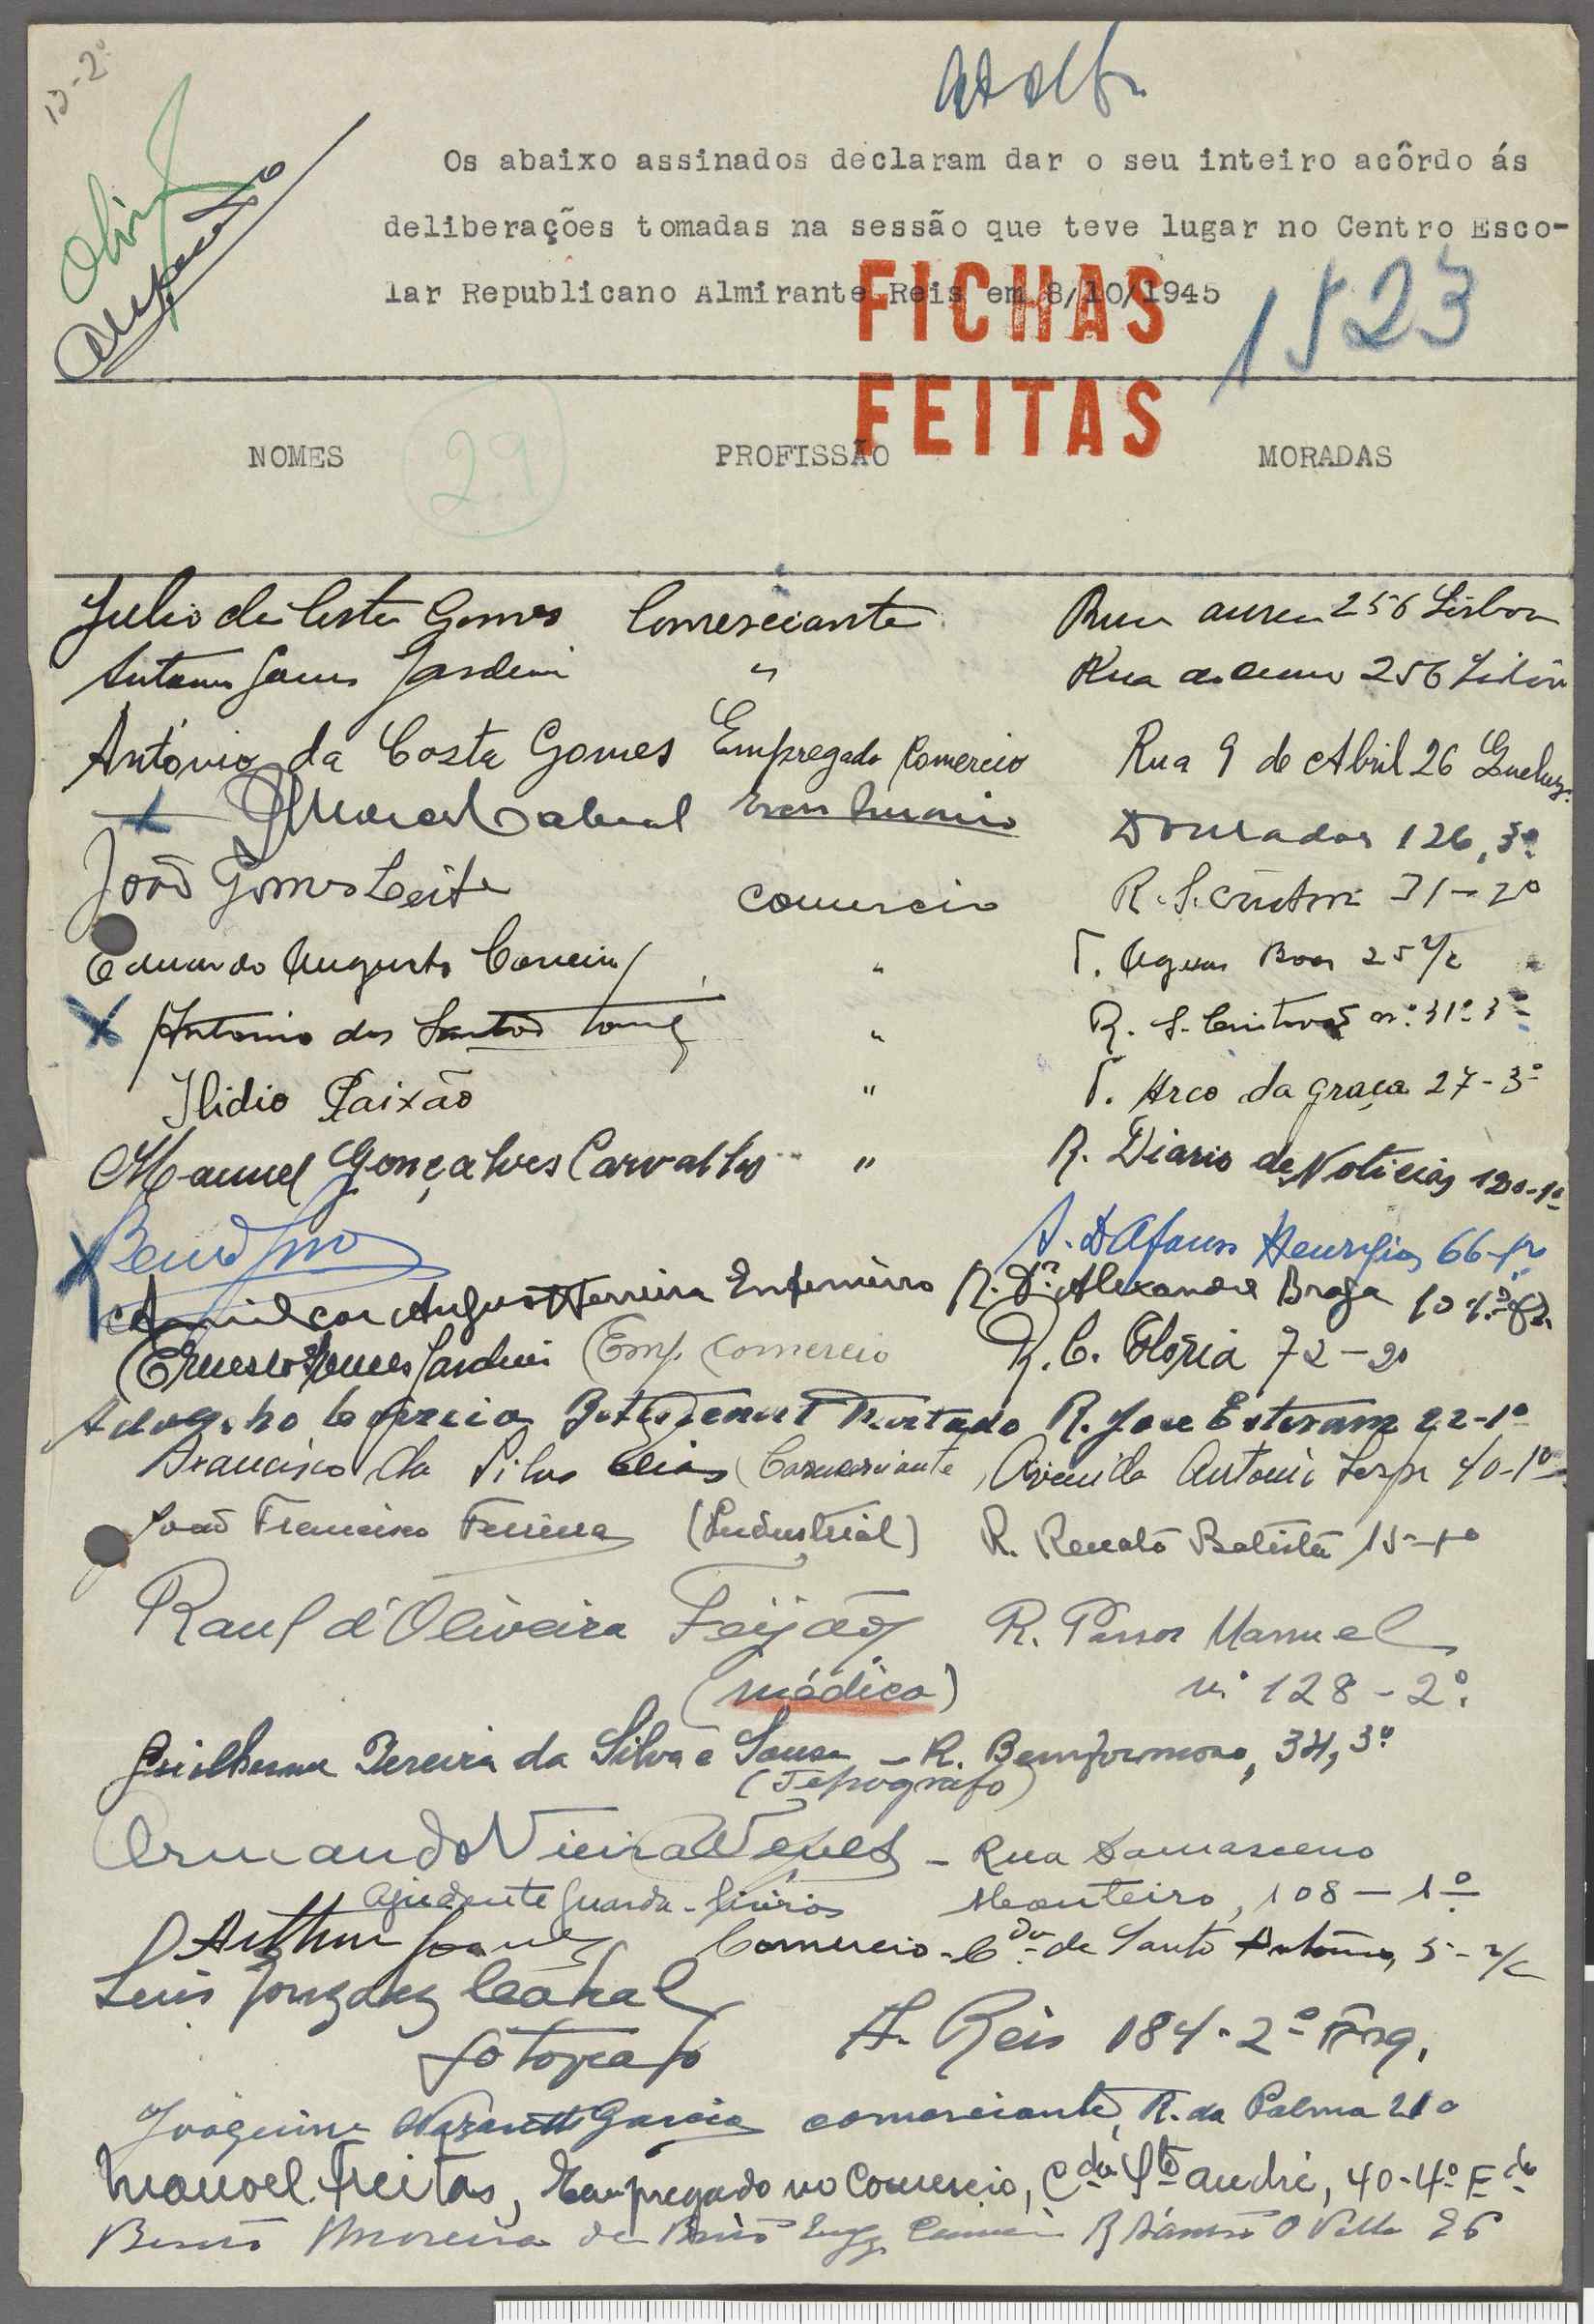 13-2º
Os abaixo assinados declaram dar o seu inteiro acôrdo ás
deliberações tomadas na sessão que teve lugar no Centro Esco-
lar Republicano Almirante Reis em 8/10/1945
FICHAS
FEITAS
1523
NOMES 29 PROFISSÃO MORADAS
Julio da Costa Gomes Comerciante Rua aurea 256 Lisboa
Antonio Gomes Jardim " Rua do Ouro 256 Lisboa
António da Costa Gomes Empregado Comercio Rua 9 de Abril 26 Queluz
Cabral Douradores 126, 3º
João Gomes Leite comercio R. S. Cristovam 31-2º
Eduardo Augusto Correia " T. Aguas Boas 25 r/c
Antonio dos Santos Tomé " R. S. Cristovão nº 31º 3º
Ilidio Paixão " T. Arco da Graça 27-3º
Manuel Gonçalves Carvalho " R. Diario de Noticias 120-1º
A. D Afonso Henriques 66-
Amilcar Augusto Ferreira Enfermeiro R. Dr. Alexandre Braga 10
Ernesto Gomes Jardim (Emp. Comercio R. C. Glória 72-2º
R. Jose Estevam 22-1º
Francisco da Silva Elias (Comerciante) Avenida Antonio Serpa 40-1º
João Francisco Ferreira (Industrial) R. Renato Batista 15-1º
Raul d'Oliveira Feijão R. Passos Manuel
(médico) nº 128-2º.
Guilherme Pereira da Silva e Sousa - R. Bemformoso, 34, 3º
(Tipógrafo)
Armando Vieira - Rua Damasceno
Ajudante Guarda-livros Monteiro, 108-1º
Arthur Gomes Comercio - Cda de Santo António, 5-r/c
Luis Gonzalez Cabral
fotografo A. Reis 184-2º Esq.
Joaquim Nazareth Garcia comerciante, R. da Palma 210
Manoel Freitas, Empregado no Comercio, Cda Sto André, 40-4º Edo
Bento Moreira de Brito